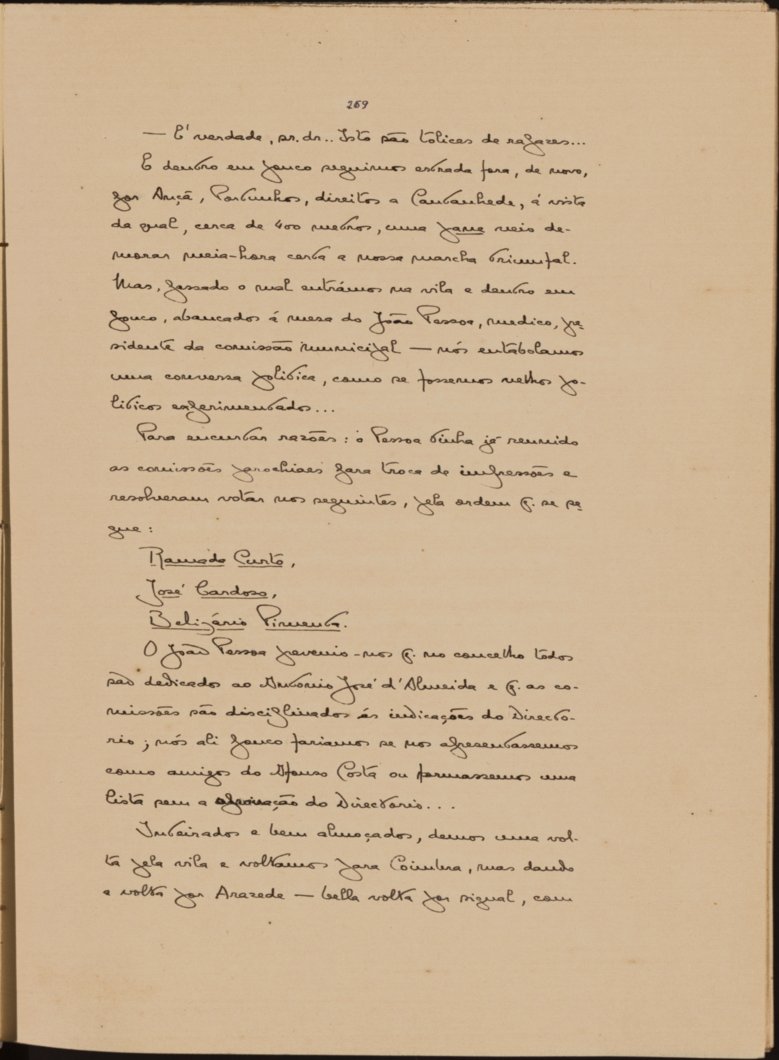 269
— E' verdade, sr. dr.. Isto são tolices de rapazes...
E dentro em pouco seguimos estrada fora, de novo,
por Ançã, Portunhos, direitos a Cantanhede, á vista
da qual, cerca de 400 metros, uma pane veio de-
morar meia-hora certa a nossa marcha triumfal.
Mas, passado o mal entrámos na vila e dentro em
pouco, abancados á mesa do João Pessoa, medico, pre-
sidente da comissão municipal — nós entabolamos
uma conversa politica, como se fossemos velhos po-
liticos experimentados...
Para encurtar razões: o Pessoa tinha já reunido
as comissões parochiaes para troca de impressões e
resolveram votar nos seguintes, pela ordem q. se se-
gue:
Ramada Curto,
José Cardoso,
Belizário Pimenta.
O João Pessoa preveniu-nos q. no concelho todos
são dedicados ao Antonio José d'Almeida e q. as co-
missões são disciplinados ás indicações do Directo-
rio; nós ali pouco fariamos se nos apresentassemos
como amigos do Afonso Costa ou formassemos uma
lista sem a aprovação do Directorio...
Inteirados e bem almoçados, demos uma vol-
ta pela vila e voltamos para Coimbra, mas dando
a volta por Arazede — bella volta por signal, com